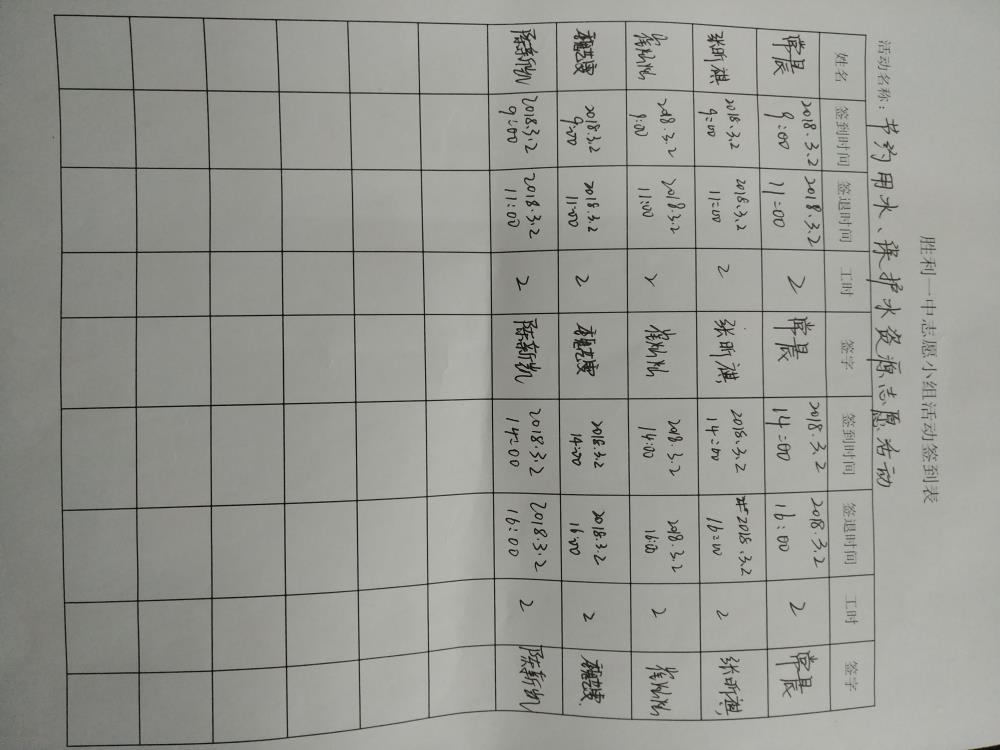 胜利一中志愿小组活动签到表
活动名称：节约用水、保护水资源志愿活动
姓名 签到时间 签退时间 工时 签字 签到时间 签退时间 工时 签字
常晨 2018.3.2 9:00 2018.3.2 11:00 2 常晨 2018.3.2 14:00 2018.3.2 16:00 2 常晨
张昕祺 2018.3.2 9:00 2018.3.2 11:00 2 张昕祺 2018.3.2 14:00 2018.3.2 16:00 2 张昕祺
2018.3.2 9:00 2018.3.2 11:00 2 2018.3.2 14:00 2018.3.2 16:00 2
2018.3.2 9:00 2018.3.2 11:00 2 2018.3.2 14:00 2018.3.2 16:00 2
陈新凯 2018.3.2 9:00 2018.3.2 11:00 2 陈新凯 2018.3.2 14:00 2018.3.2 16:00 2 陈新凯